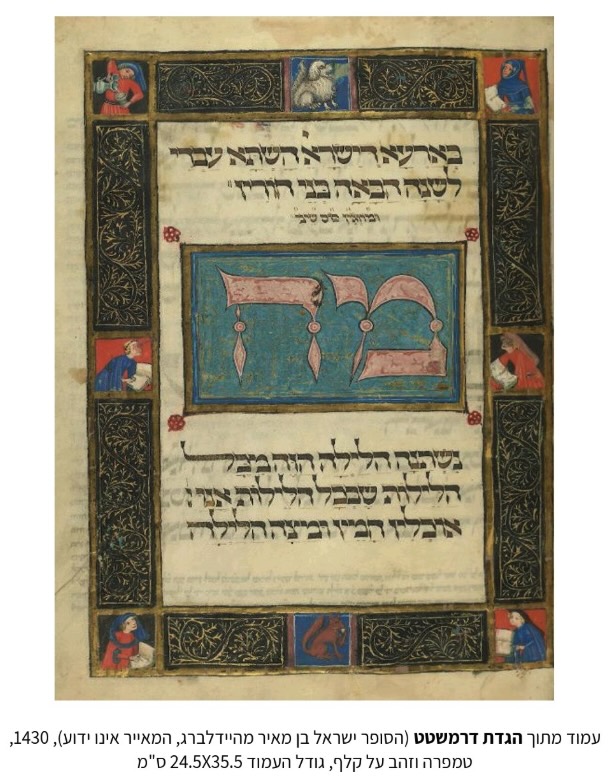 בארעא דישרא השתא עבדי
לשנה הבאה בני חורין
ומוזגין כוס שיני
מה
נשתנה הלילה הזה מכל
הלילות שבכל הלילות אנו
אוכלין חמץ ומצה הלילה
עמוד מתוך הגדת דרמשטט (הסופר ישראל בן מאיר מהיידלברג, המאייר אינו ידוע), 1430,
טמפרה וזהב על קלף, גודל העמוד 24.5X35.5 ס"מ